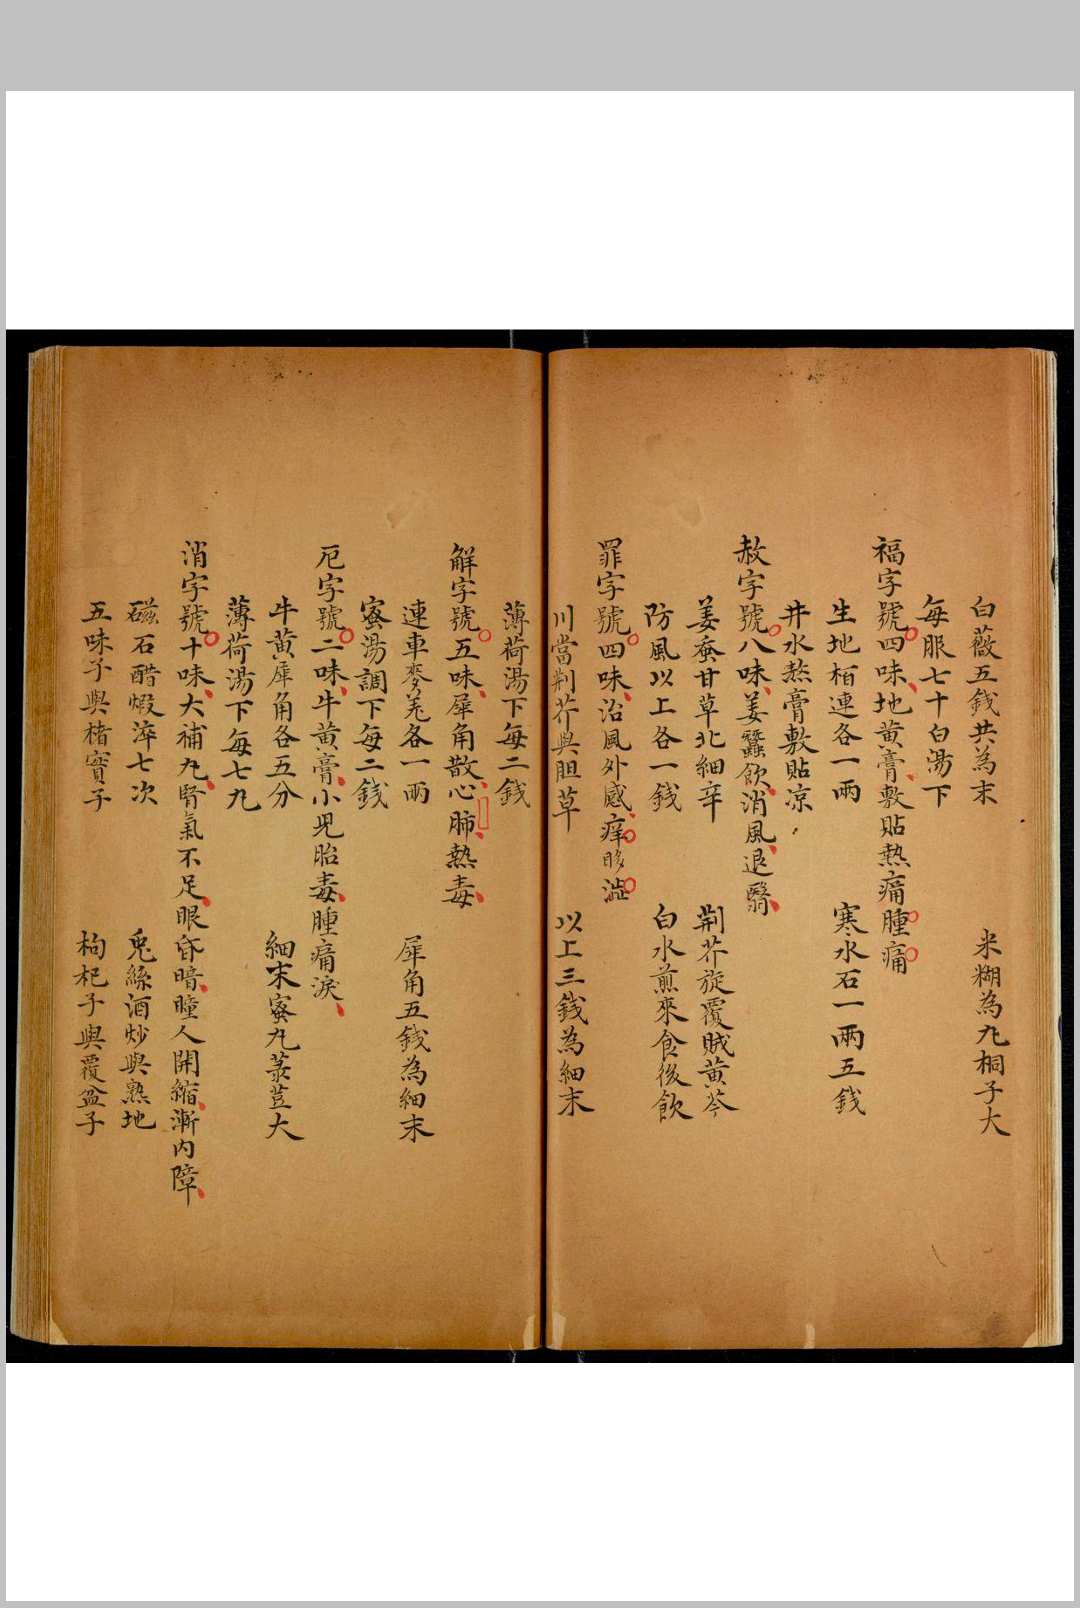 白薇五錢共為末 米糊為丸桐子大
每服七十白湯下
福字號四味地黃膏敷貼熱痛腫痛
生地栢連各一兩 寒水石一兩五錢
井水熬膏敷貼凉
赦字號八味姜蠶飲消風退翳
姜蚕甘草北細辛 荊芥旋覆賊黃芩
防風以上各一錢 白水煎來食後飲
罪字號四味治風外感痒眵澁
川當荊芥與胆草 以上三錢為細末
薄荷湯下每二錢
解字號五味犀角散心肺熱毒
連車麥羌各一兩 犀角五錢為細末
蜜湯調下每二錢
厄字號二味牛黃膏小兒胎毒腫痛淚
牛黃犀角各五分 細末蜜丸菉荳大
薄荷湯下每七丸
消字號十味大補丸腎氣不足眼昏暗瞳人開縮漸內障
磁石醋煆淬七次 兎絲酒炒與熟地
五味子與楮實子 枸杞子與覆盆子